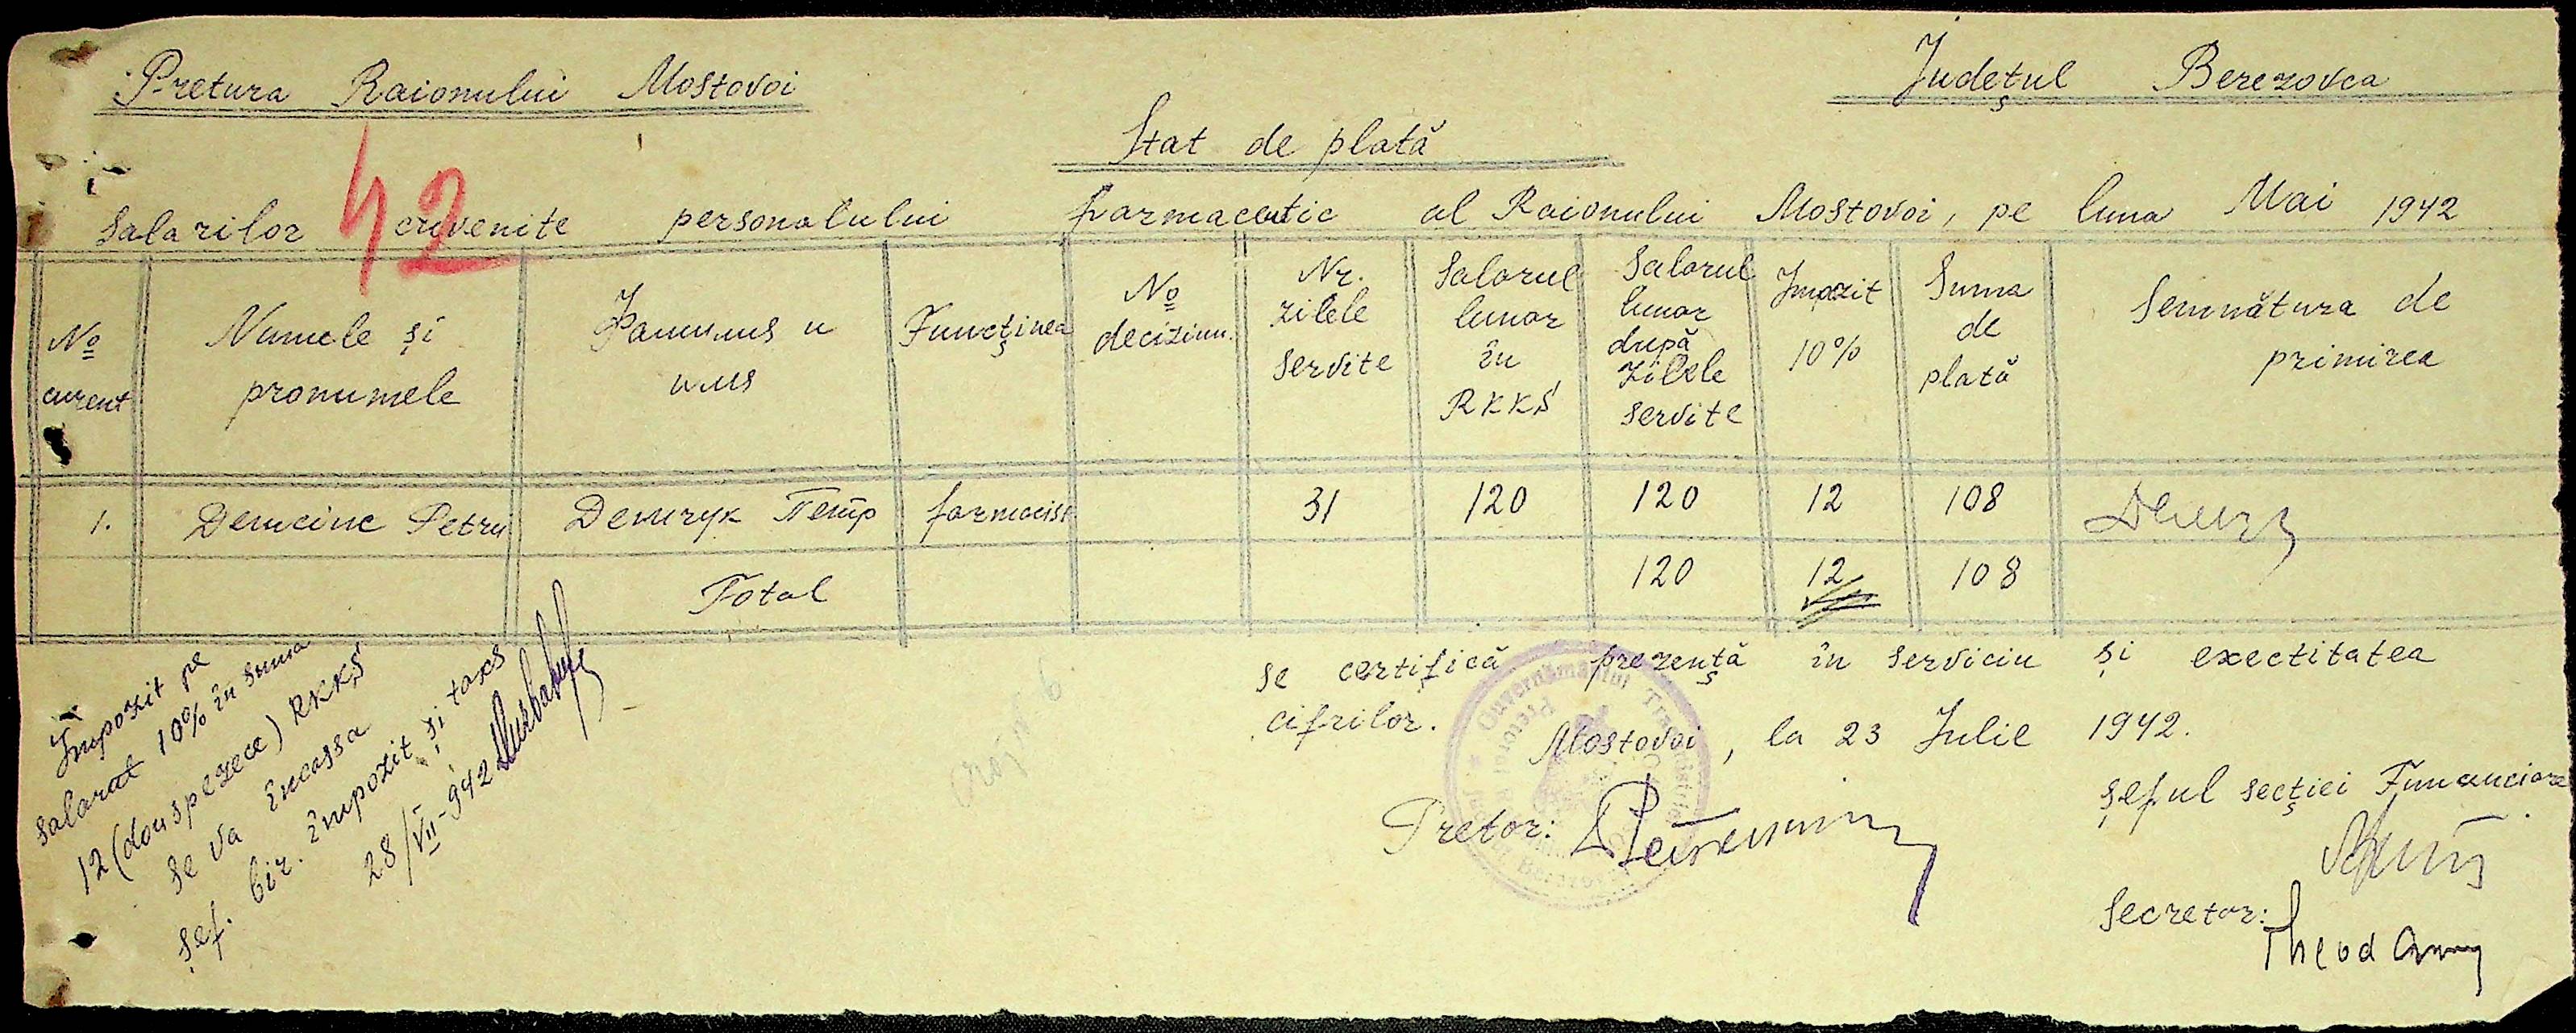 Pretura Raionului Mostovoi
Județul Berezovca
Stat de plată
42
Salarilor cuvenite personalului farmaceutic al Raionului Mostovoi, pe luna Mai 1942
№ curent
Numele și pronumele
Фамилия и имя
Funcținea
№ deciziun.
Nr. zilele servite
Salarul lunar în RKKS
Salarul lunar după zilele servite
Impozit 10%
Suma de plată
Semnătura de primirea
1. Demcinc Petru Демчук Петр farmacist 31 120 120 12 108
Total 120 12 108
Impozit pe
salarat 10% în suma
12 (douspezece) RKKS
se va încassa
șef. bir. împozit și taxs
28/VII-942
se certifică prezență în serviciu și exectitatea
cifrilor.
Mostovoi, la 23 Julie 1942.
Guvernământul Transnistriei
Pretor:
șeful secției Finanaciare
Secretar:
Theod